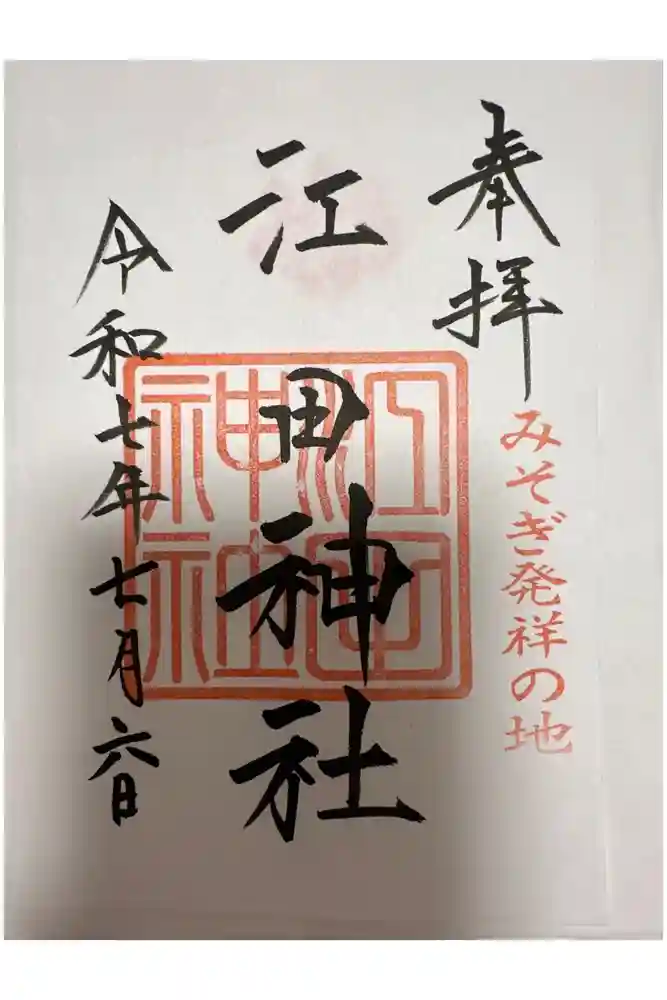 奉拝
みそぎ発祥の地
江田神社
江田
神社
令和七年七月六日